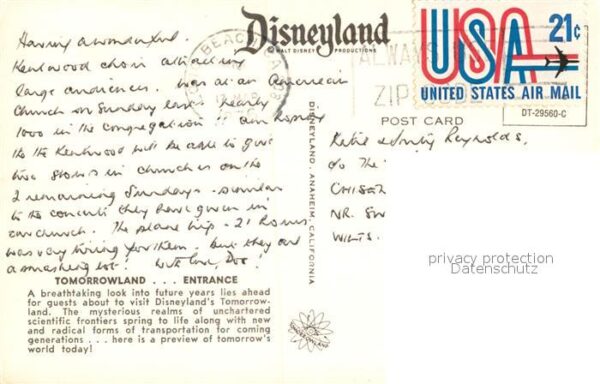 Having a wonderful
Kentwood choir attracting
large audiences. Was at an American
Church on Sunday last nearly
1000 in the congregation. I am
the Kentwood will be able to give
two shows in churches on the
2 remaining Sundays - similar
to the concerts they have given in
our church. The plane trip - 21 hours
was very tiring for them. But they are
a smashing lot. With love,
TOMORROWLAND . . . ENTRANCE
A breathtaking look into future years lies ahead
for guests about to visit Disneyland's Tomorrow-
land. The mysterious realms of unchartered
scientific frontiers spring to life along with new
and radical forms of transportation for coming
generations . . . here is a preview of tomorrow's
world today!
Disneyland
© WALT DISNEY PRODUCTIONS
BEACH
ALWAYS
ZIP CODE
POST CARD
DISNEYLAND • ANAHEIM, CALIFORNIA
USA 21c
UNITED STATES AIR MAIL
DT-29560-C
Reynolds,
c/o The
NR. SW
WILTS.
privacy protection
Datenschutz